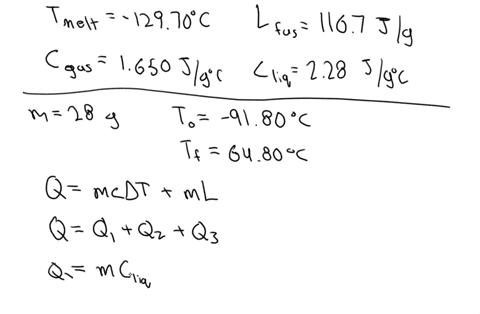 T melt = -129.70°C L fus = 116.7 J/g
C gas = 1.650 J/g°C C liq = 2.28 J/g°C
m = 28 g T₀ = -91.80 °C
T_f = 64.80 °C
Q = mcΔT + mL
Q = Q₁ + Q₂ + Q₃
Q₁ = m C liq